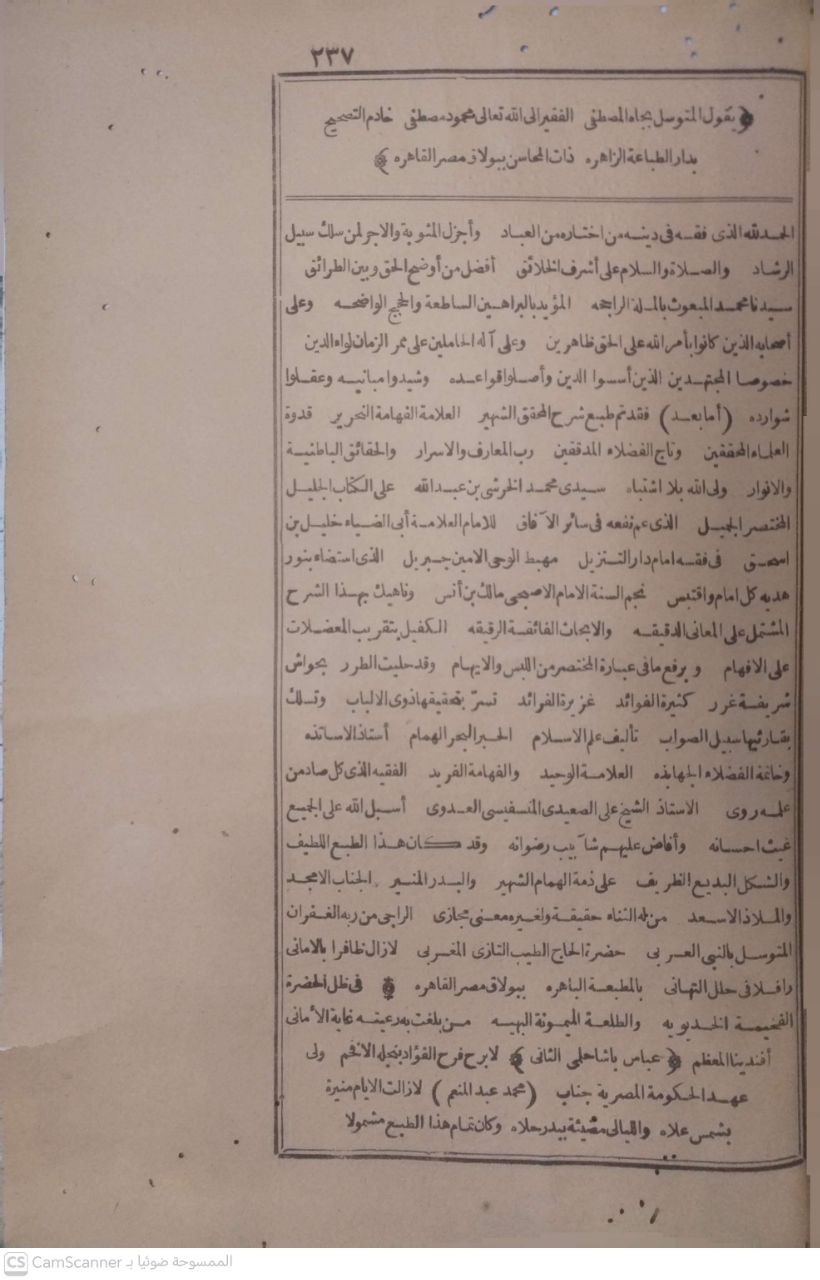 ٢٣٧
﴿ يقول المتوسل بجاه المصطفى الفقير الى الله تعالى محمود مصطفى خادم التصحيح
بدار الطباعة الزاهره ذات المحاسن ببولاق مصر القاهره ﴾
الحمد لله الذى فقه فى دينه من اختاره من العباد وأجزل المثوبة والاجر لمن سلك سبيل
الرشاد والصلاة والسلام على أشرف الخلائق أفضل من أوضح الحق وبين الطرائق
سيدنا محمد المبعوث بالملة الراجحه المؤيد بالبراهين الساطعة والحجج الواضحه وعلى
أصحابه الذين كانوا بأمر الله على الحق ظاهرين وعلى آله الحاملين على ممر الزمان لواء الدين
خصوصا المجتهدين الذين أسسوا الدين وأصلوا قواعده وشيدوا مبانيه وعقلوا
شوارده (أما بعد) فقد تم طبع شرح المحقق الشهير العلامة الفهامة النحرير قدوة
العلماء المحققين وتاج الفضلاء المدققين رب المعارف والاسرار والحقائق الباطنية
والانوار ولى الله بلا اشتباه سيدى محمد الخرشى بن عبد الله على الكتاب الجليل
المختصر الجميل الذى عم نفعه فى سائر الآفاق للامام العلامة أبى الضياء خليل بن
اسحق فى فقه امام دار التنزيل مهبط الوحى الامين جبريل الذى استضاء بنور
هديه كل امام واقتبس نجم السنة الامام الاصبحى مالك بن أنس وناهيك بهذا الشرح
المشتمل على المعانى الدقيقه والابحاث الفائقة الرقيقه الكفيل بتقريب المعضلات
على الافهام ويرفع ما فى عبارة المختصر من اللبس والايهام وقد حليت الطرر بحواش
شريفة غرر كثيرة الفوائد غزيرة الفرائد تسر بتحقيقها ذوى الالباب وتسلك
بقارئيها سبيل الصواب تأليف علم الاسلام الحبر البحر الهمام أستاذ الاساتذه
وخاتمة الفضلاء الجهابذه العلامة الوحيد والفهامة الفريد الفقيه الذى كل صاد من
علمه روى الاستاذ الشيخ على الصعيدى المنفيسى العدوى أسبل الله على الجميع
غيث احسانه وأفاض عليهم شآبيب رضوانه وقد كان هذا الطبع اللطيف
والشكل البديع الظريف على ذمة الهمام الشهير والبدر المنير الجناب الامجد
والملاذ الاسعد من له الثناء حقيقة ولغيره معنى مجازى الراجى من ربه الغفران
المتوسل بالنبى العربى حضرة الحاج الطيب التازى المغربى لازال ظافرا بالامانى
رافلا فى حلل التهانى بالمطبعة الباهره ببولاق مصر القاهره فى ظل الحضرة
الفخيمة الخديويه والطلعة الميمونة البهيه من بلغت به رعيته غاية الأمانى
أفندينا المعظم ﴿ عباس باشا حلمى الثانى ﴾ لابرح فرح الفؤاد بنجله الافخم ولى
عهد الحكومة المصرية جناب (محمد عبد المنعم) لازالت الايام منيرة
بشمس علاه والليالى مضيئة ببدر حلاه وكان تمام هذا الطبع مشمولا
CS CamScanner الممسوحة ضوئيا بـ